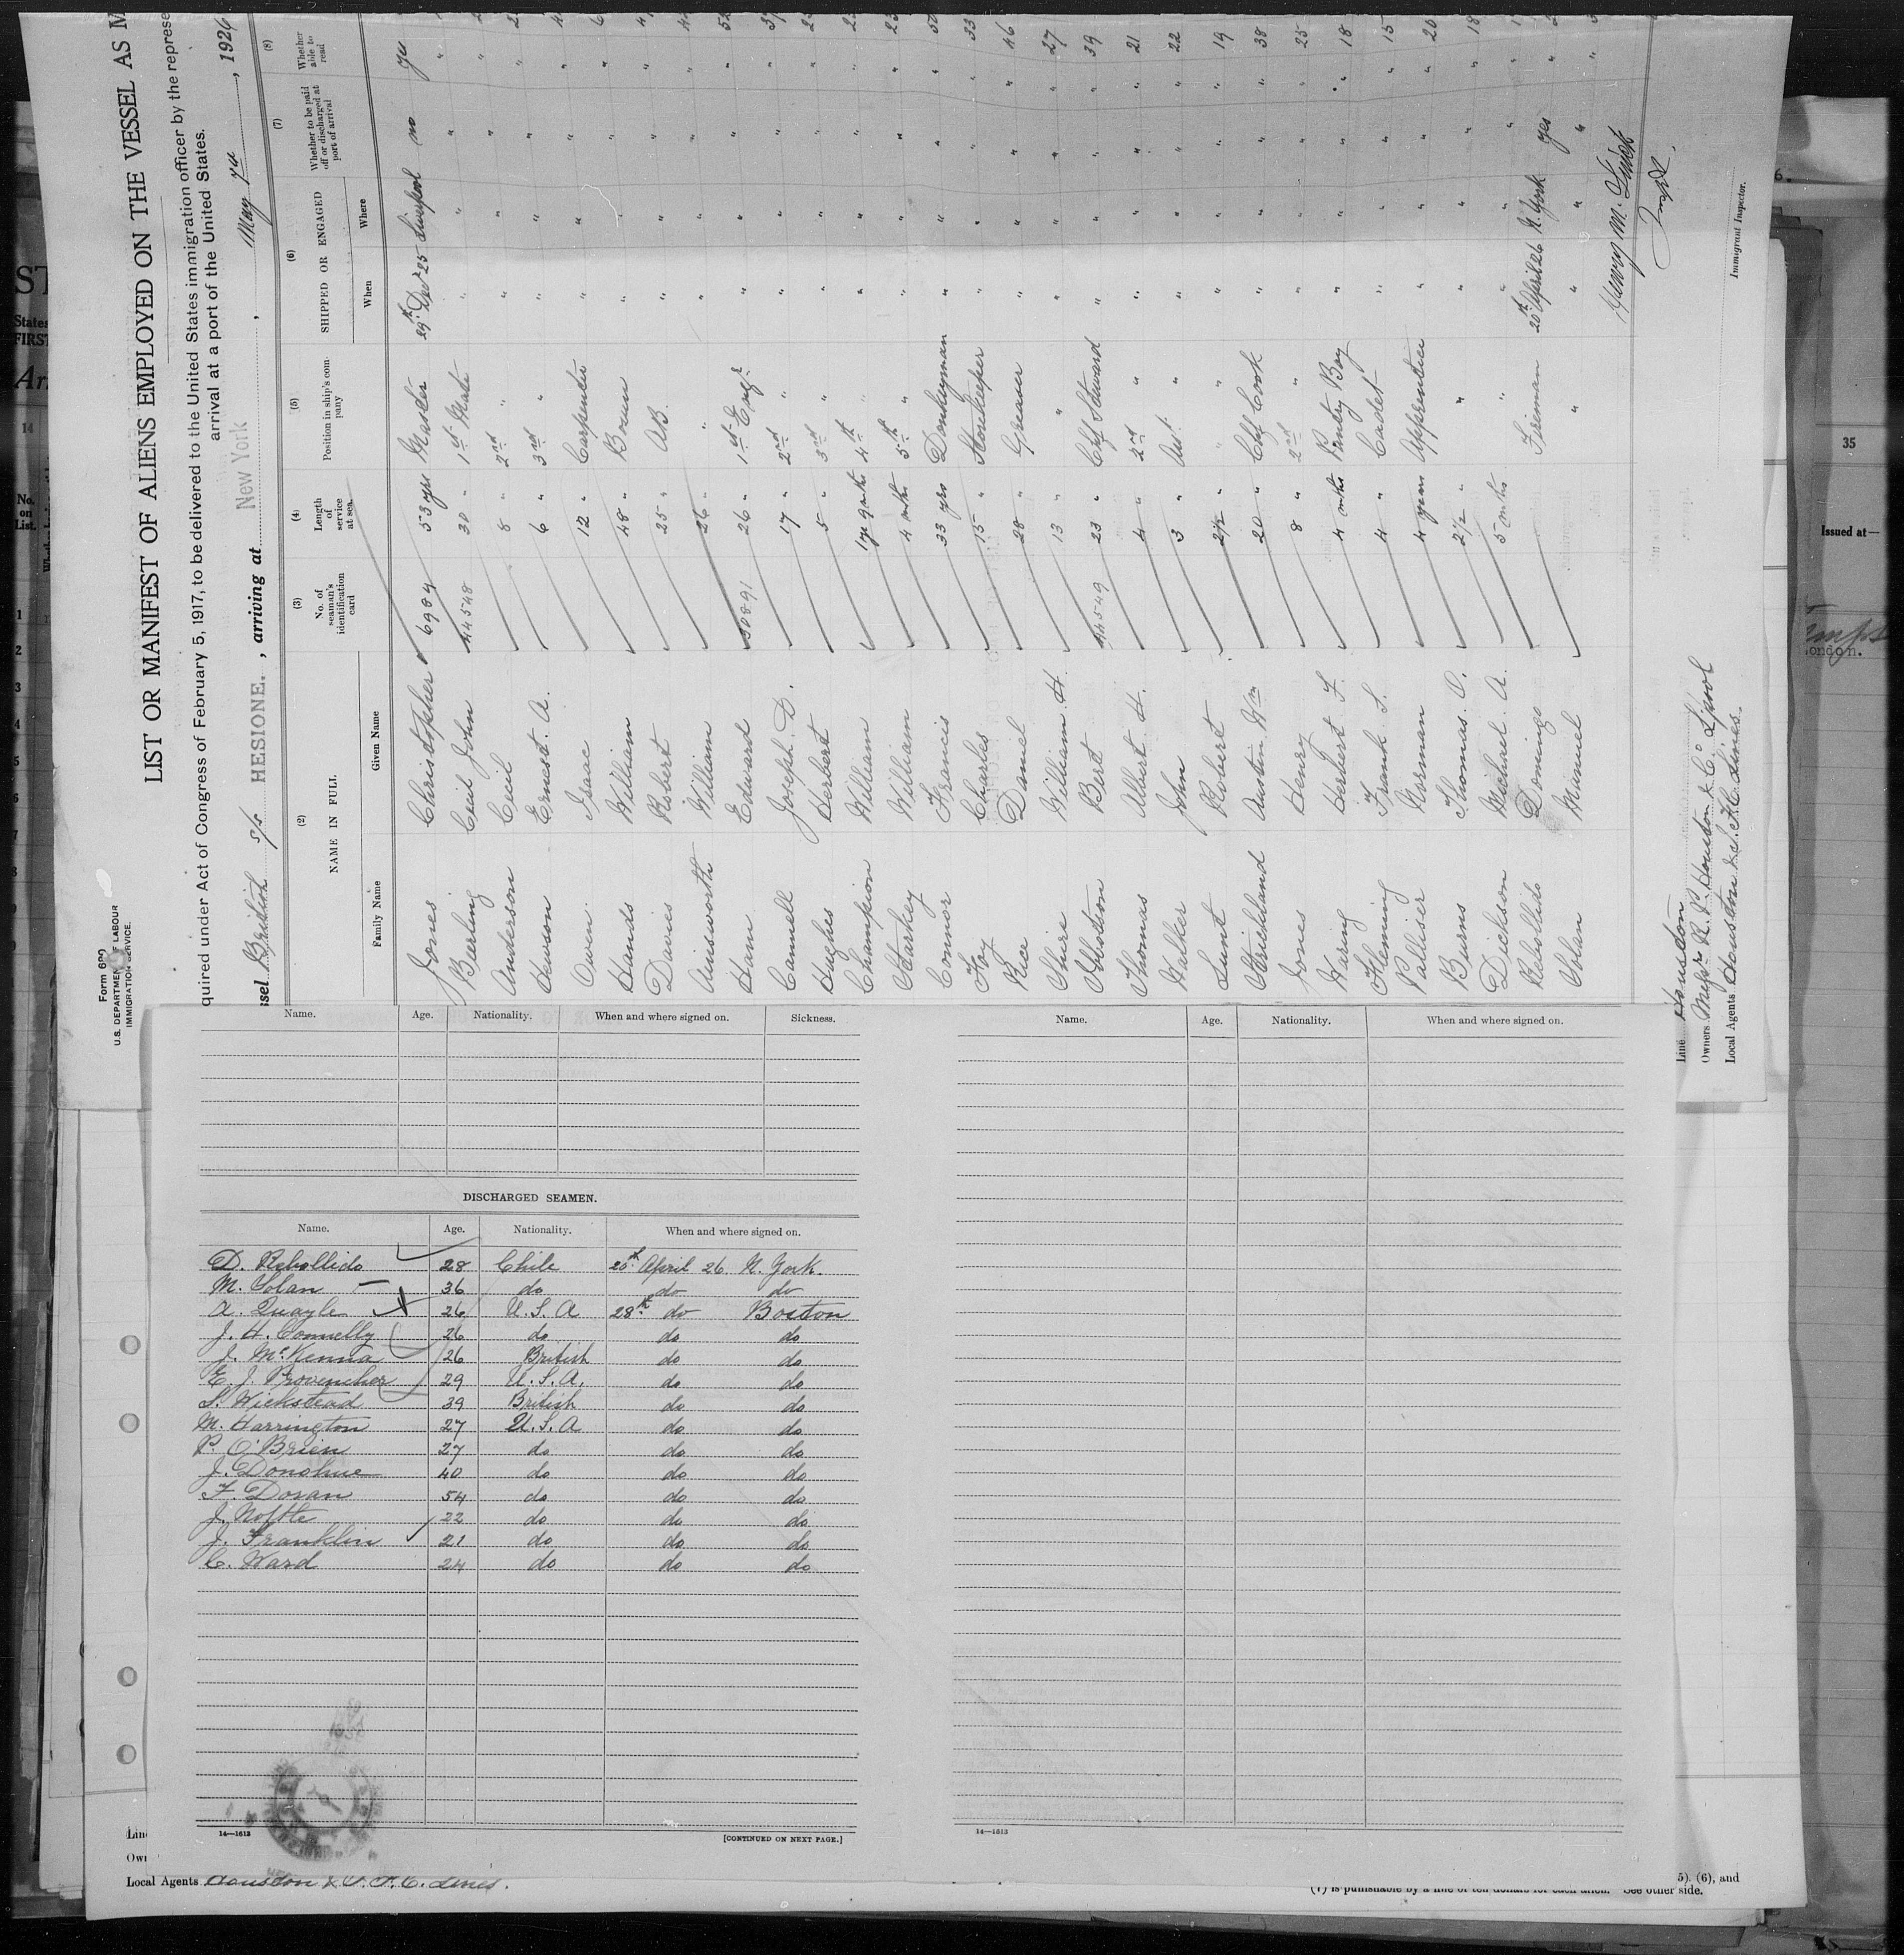 Form 680
U.S. DEPARTMENT OF LABOUR
IMMIGRATION SERVICE.
LIST OR MANIFEST OF ALIENS EMPLOYED ON THE VESSEL AS M
quired under Act of Congress of February 5, 1917, to be delivered to the United States immigration officer by the represe
arrival at a port of the United States.
ssel British s/s HESIONE. , arriving at New York , May 7th , 1926
(2) (3) (4) (5) (6) (7) (8)
NAME IN FULL
Family Name Given Name
No. of seaman's identification card
Length of service at sea
Position in ship's company
SHIPPED OR ENGAGED
When Where
Whether to be paid off or discharged at port of arrival
Whether able to read
Jones Christopher 6984 53 yrs Master 29th Decr 25 Liverpool no
Bierling Cecil John 44548 30 " 1st Mate " " "
Anderson Cecil 8 " 2nd " " " "
Hewson Ernest. A. 6 " 3rd " " " "
Owen Isaac 12 " Carpenter " " "
Hands William 48 " Bosun " " "
Davies Robert 25 " AB. " " "
Ainsworth William 26 " " " " "
Ham Edward 50891 26 " 1st Engr. " " "
Cannell Joseph. D. 17 " 2nd " " " "
Hughes Herbert 5 " 3rd " " " "
Champion William 1yr 9 mths 4th " " " "
Harkey William 4 mths 5th " " " "
Connor Francis 33 yrs Donkeyman " " "
Foy Charles 15 " Storekeeper " " " 33
Rice Daniel 28 " Greaser " " " 46
Shire William. H. 13 " " " " " 27
Ibbotson Bert 44549 23 " Chf Steward " " " 39
Thomas Albert. H. 4 " 2nd " " " " 21
Walker John 3 " Asst. " " " " 22
Lunt Robert 2½ " " " " " 19
Strickland Austin Wm 20 " Chf Cook " " " 38
Jones Henry 8 " 2nd " " " " 25
Waring Herbert F. 4 mths Pantry Boy " " " 18
Fleming Frank S. 4 " Cadet " " " 15
Palliser Norman 4 years Apprentice " " " 20
Burns Thomas. O. 2½ " " " " " 18
Dickson Michael A. 5 mths " " " "
Rebollido Domingo Fireman 20th April 26 N. York yes
Solan Manuel " " " "
Henry M.
Immigrant Inspector.
Line Houston
Owners Messrs R. P. Houston & Co L'pool
Local Agents Houston & S.A.C. Lines.
Name. Age. Nationality. When and where signed on. Sickness.
DISCHARGED SEAMEN.
Name. Age. Nationality. When and where signed on.
D. Rebollido 28 Chile 20th April 26 N. York.
M. Solan 36 do do do
A. Quayle 26 U.S.A 28th do Boston
J. H. Connelly 26 do do do
J. McKenna 26 British do do
E. J. Provencher 29 U.S.A. do do
S. Wickstead 39 British do do
M. Harrington 27 U.S.A do do
P. O'Brien 27 do do do
J. Donohue 40 do do do
F. Doran 54 do do do
J. Noftle 22 do do do
J. Franklin 21 do do do
C. Ward 24 do do do
14—1613
[CONTINUED ON NEXT PAGE.]
Name. Age. Nationality. When and where signed on.
14—1613
Local Agents Houston & S.A.C. Lines.
5). (6), and
(7) is punishable by a fine of ten dollars for each alien. See other side.
States
FIRST
No. on List.
14
35
Issued at—
London.